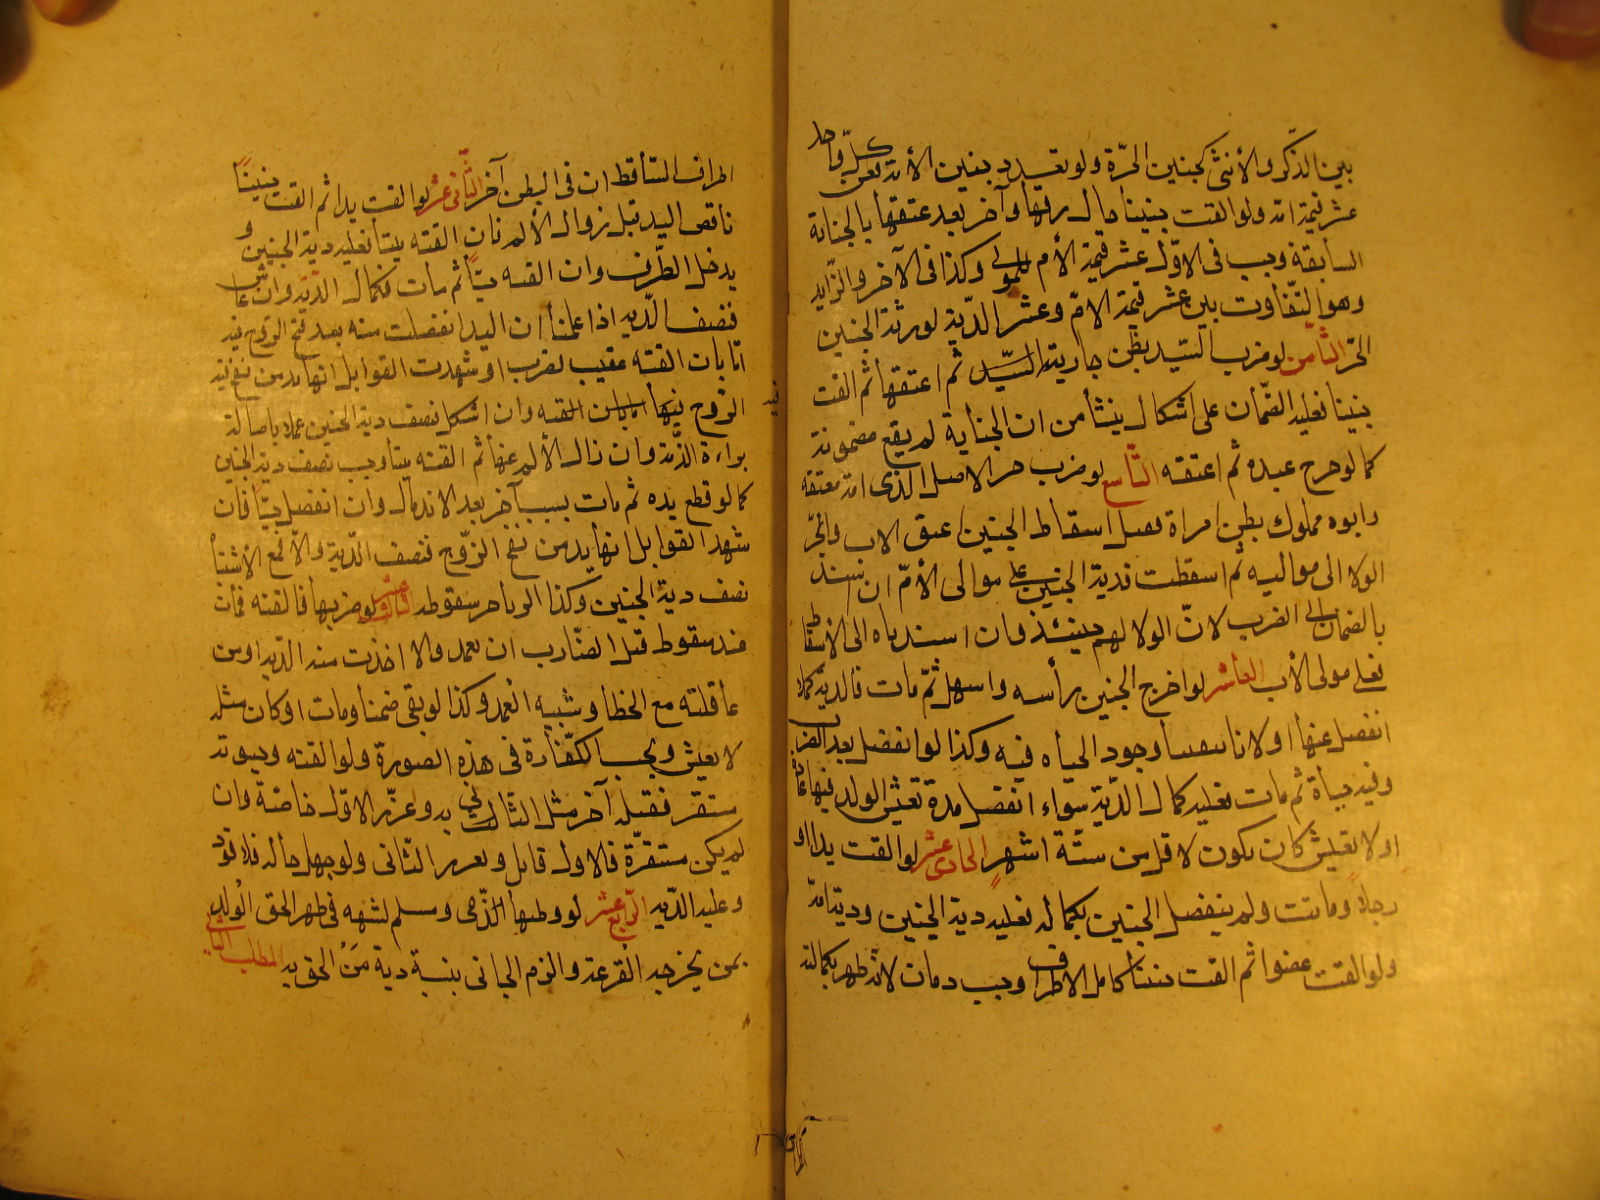 بين الذكر والأنثى كجنين الحرّة ولو تعدد فجنين الأمة تعين كلّ واحد
عشر قيمة امه ولو القت جنينا حال رقها وآخر بعد عتقها بالجناية
السابقة وجب فى الاوّل عشر قيمة الأم للمولى وكذا فى الآخر والزّايد
وهو التّفاوت بين عشر قيمة الامّ وعشر الدّية لورثة الجنين
الحرّ الثامن لو ضرب السّيد بطن جارية السّيد ثم اعتقها ثم القت
جنينا فعليه الضّمان على اشكال ينشأ من ان الجناية لم يقع مضمونة
كما لو جرح عبده ثم اعتقه التّاسع لو ضرب حر الاصل الذى امه معتقة
وابوه مملوك بطن امراة فقبل اسقاط الجنين اعتق الاب وانجرّ
الولا الى مواليه ثم اسقطت فدية الجنين على موالى الأمّ ان نسند
بالضمان الى الضرب لانّ الولا لهم حينئذ وان اسندناه الى الاسقاط
فعلى مولى الأب العاشر لو اخرج الجنين رأسه واستهل ثمّ مات فالدية كملا
انفصل عنها او لا لانا تيقنا وجود الحياه فيه وكذا لو انفصل بعد الضرب
وفيه حياة ثم مات فعليه كمال الدّية سواء انفصل لمدة تعيش الولد فيها عادة
او لا تعيش كان يكون لاقل من ستّة اشهرٍ الحادى عشر لو القت يدا او
رجلا وماتت ولم ينفصل الجنين بكماله فعليه دية الجنين ودية امّه
ولو القت عضوا ثم القت جنينا كامل الاطراف وجب دمان لانه ظهر بكماله
اطراف السّاقط ان فى البطن آخر الثّانى عشر لو القت يدا ثم القت جنينًا
ناقص اليد قبل زوال الألم فان القته ميتا فعليه دية الجنين و
يدخل الطّرف وان القته حيّا ثم مات فكمال الدّية وان عاش
فنصف الدّية اذا علمنا ان اليد انفصلت منه بعد نفخ الروح فيه
امّا بان القته عقيب الضرب او شهدت القوابل انها يد من نفخ فيه
الرّوح فيها بان القته وان اشكل فنصف دية الجنين عملا باصالة
براءة الذّمة وان زال الألم عنها ثم القته ميتا وجب نصف دية الجنين
كما لو قطع يده ثم مات بسبب آخر بعد الاندمال وان انفصل حيّا فان
شهد القوابل انها يد من نفخ الرّوح فنصف الدّية والّا فمع الاشتباه
نصف دية الجنين وكذا لو تاخر سقوطه الثالث عشر لو ضربها فالقته فمات
عند سقوطه قتل الضّارب ان تعمد والا اخذت منه الدّية او من
عاقلته مع الخطأ وشبيه العمد وكذا لو بقى ضمنا ومات او كان مثله
لا يعيش ويجب الكفّارة فى هذه الصورة ولو القته وحيوته
مستقرة فقتله آخر قتل الثّانى به وعزّر الاوّل خاصّة وان
لم يكن مستقرّة فالاول قاتل ويعزر الثّانى ولو جهل حاله فلا قود
وعليه الدّية الرّابع عشر لو وطيها الذّمى ومسلم لشبهة فى طهر الحق الولد
بمن يخرجه القرعة والزم الجانى بنسبة دية مَنْ الحق به المطلب الثانى
فيه